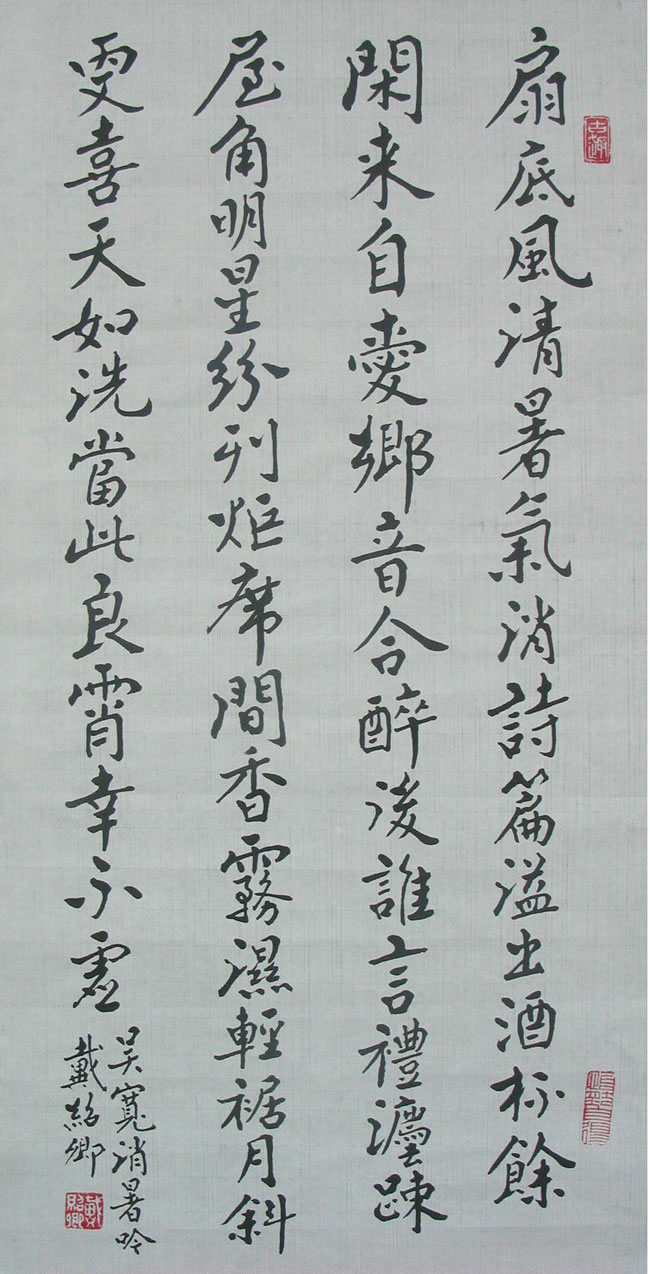 古趣
扇底風清暑氣消詩篇溢出酒杯餘
閑来自愛鄉音合醉後誰言禮灋疎
屋角明星紛列炬席間香霧濕輕裾月斜
更喜天如洗當此良霄幸不虛
吳寬消暑吟
戴紹卿